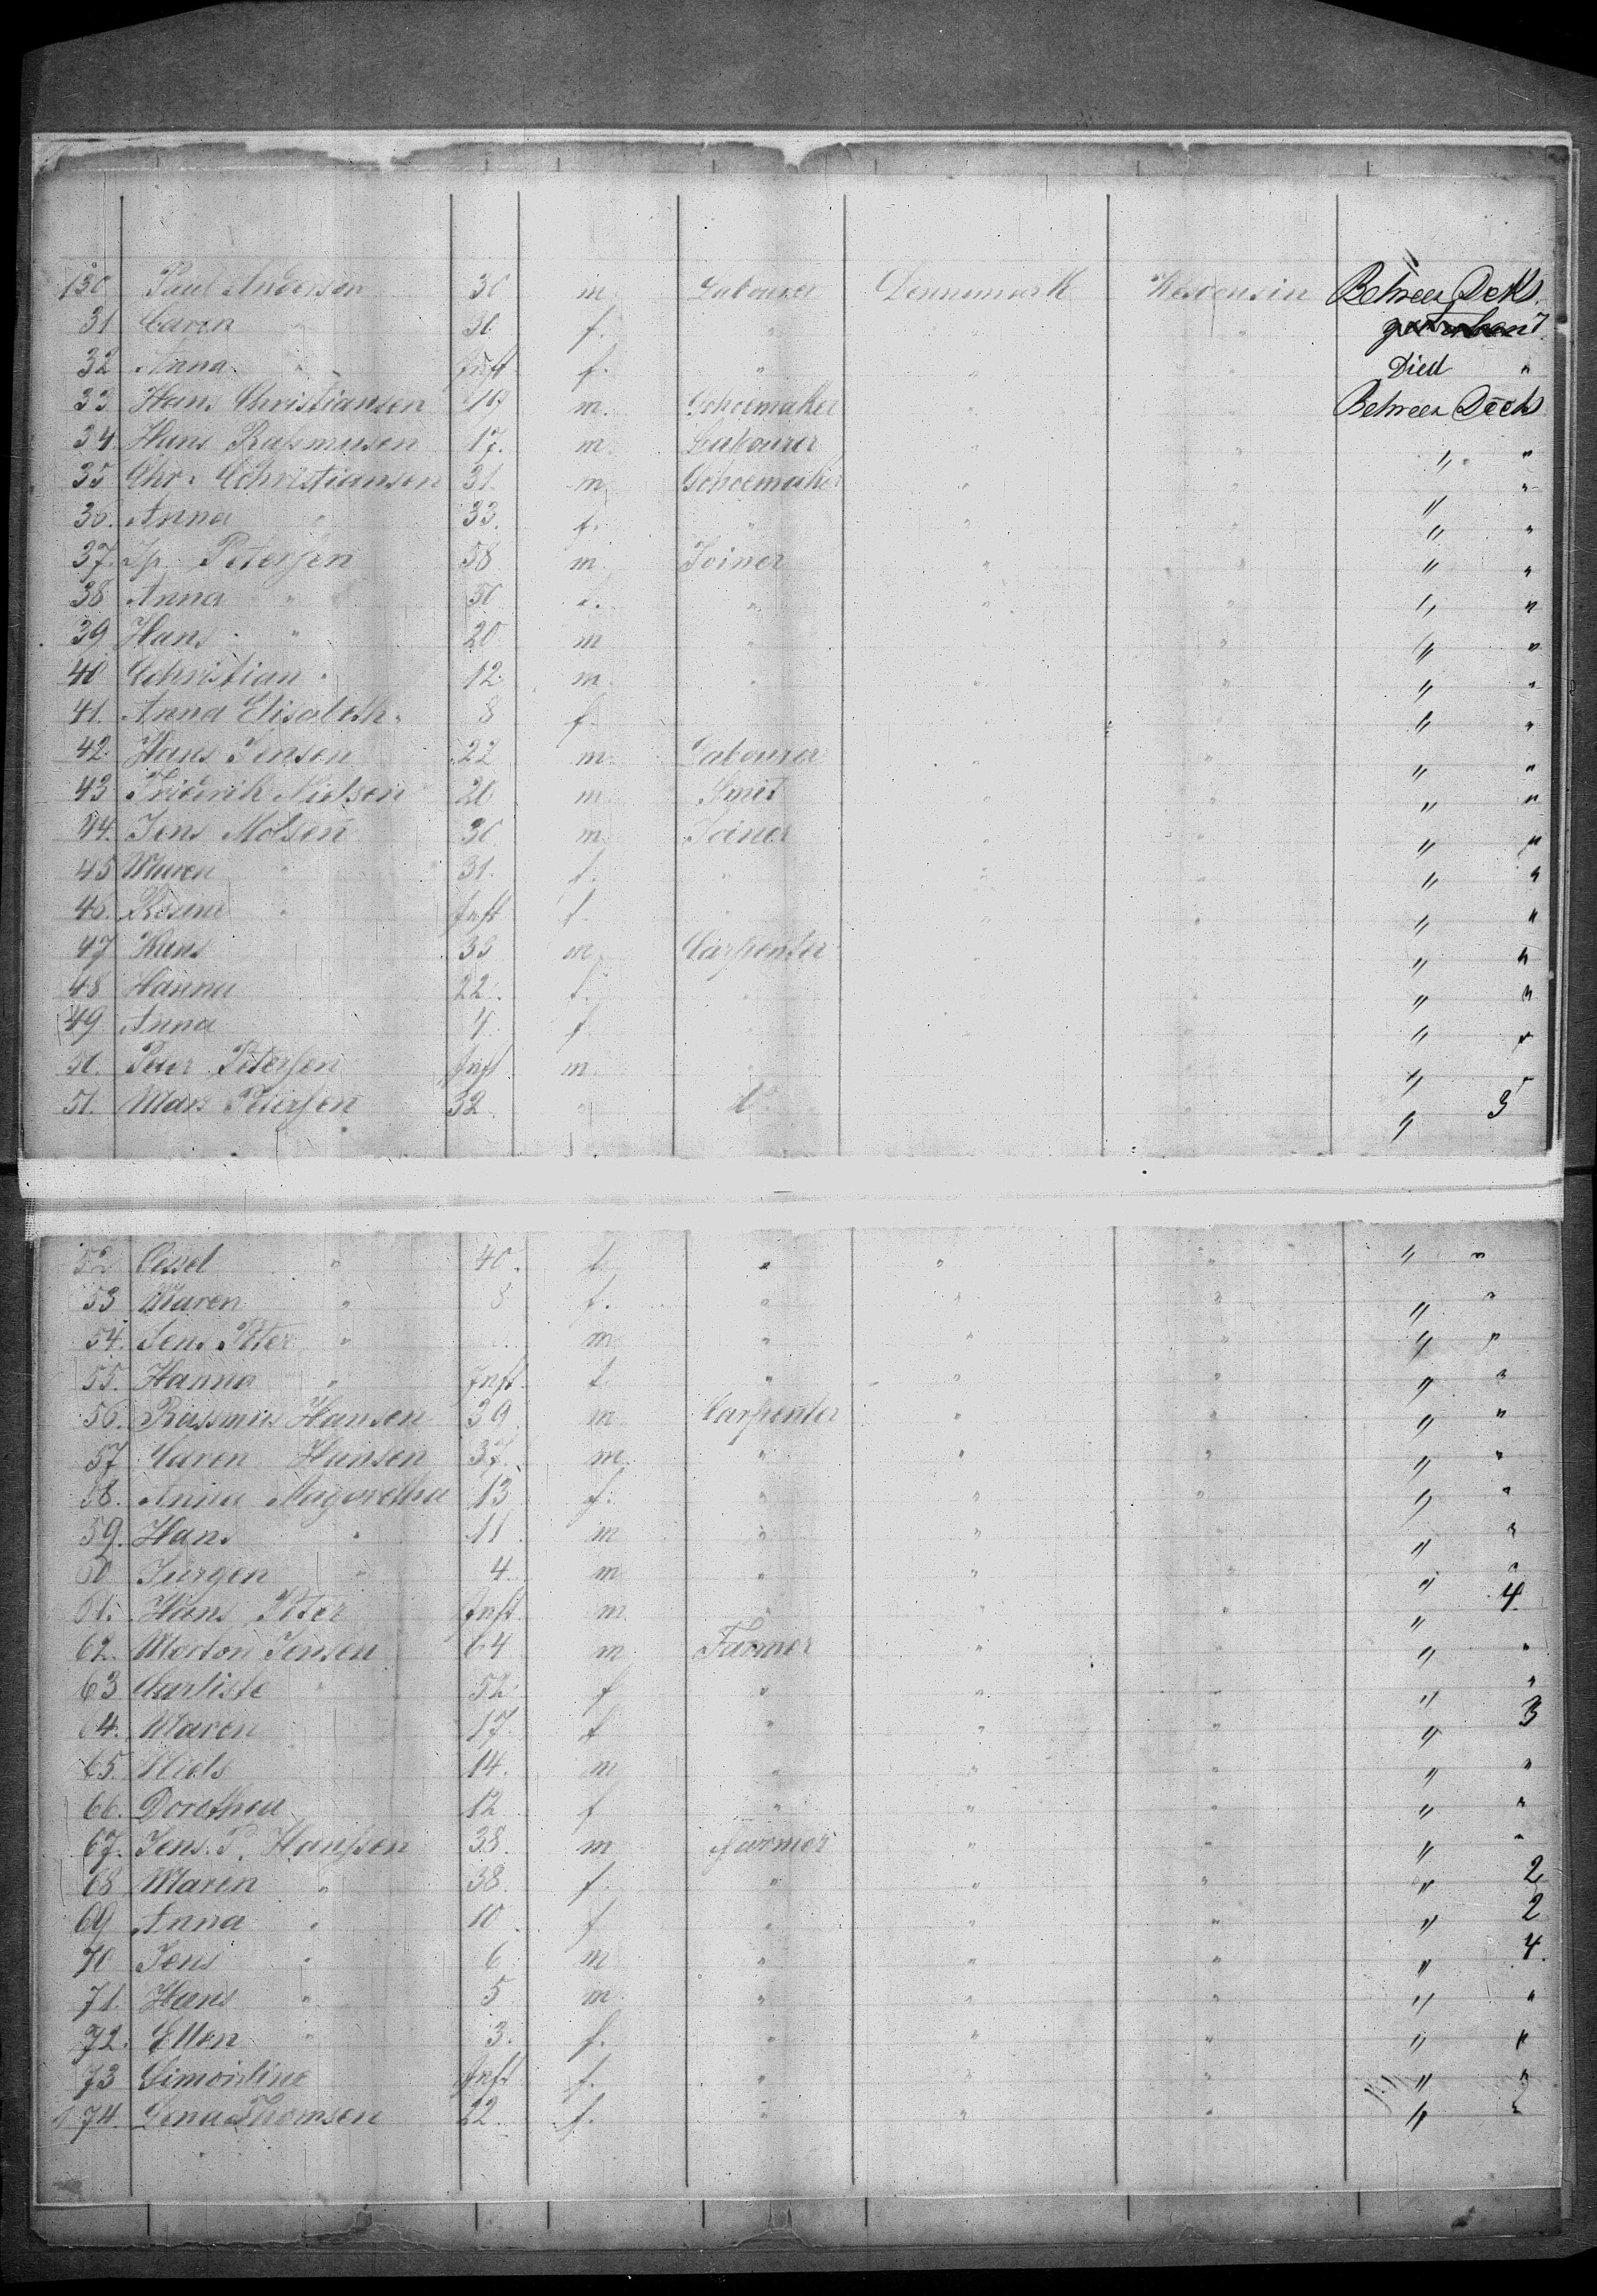 130 Paul Andersen 30 m Labourer Dennemark Wesconsin Between Decks
31 Caren " 30 f. " " "
32 Anna " Inft f. " " " Died "
33 Hans Christiansen m. Schoemaker " " Between Decks
34. Hans Rasmusen 17. m. Labourer " " " "
35 Chr. Christiansen 31 m Schoemaker " " " "
36. Anna " 33. f. " " " " "
37. Jp. Petersen 58 m Joiner " " " "
38 Anna " 50 f. " " " " "
39 Hans " 20 m " " " " "
40 Christian " 12. m. " " " " "
41. Anna Elisabeth " 8 f. " " " "
42. Hans Jensen 22 m. Labourer " " " "
43 Friderik Nielsen 20 m. Smit " " " "
44. Jens Molsen 30 m. Joiner " " " "
45 Maren " 31. f. " " " " "
46. Rosine " Inft f. " " " " "
47 Hans 33 m Carpenter " " " "
48 Hanna 22. f. " " " "
49 Anna 4 f " "
50. Peter Petersen Inft m " "
51. Mars Petersen 32 " " 3
52 Cissel " 40. f. " " " " "
53 Maren " 8 f. " " " " "
54. Jens Peter " m " " " " "
55. Hanna " Inft. f. " " " " "
56. Rassmus Hansen 39 m Carpenter " " " "
57 Caren Hansen 37. m. " " " " "
58. Anna Magaretha 13 f. " " " " "
59. Hans " 11 m " " " " "
60 Jurgen " 4. m " " " " "
61. Hans Peter Inft. m " " " " 4
62. Morton Jensen 64 m Farmer " " " "
63 " 52 f " " " " "
64. Maren 17. f " " " " 3
65. Niels 14. m " " " " "
66. Dorethea 12 f " " " " "
67. Jens. P. Hanssen 38. m Farmer " " " "
68 Maren " 38. f. " " " " 2
69 Anna " 10. f " " " " 2
70 Jens " 6 m " " " " 4.
71. Hans " 5 m. " " " " "
72. Ellen " 3. f. " " " " "
73 Simonline Inft f. " " " " "
174. Lena Thomsen 22. f. " " " " "